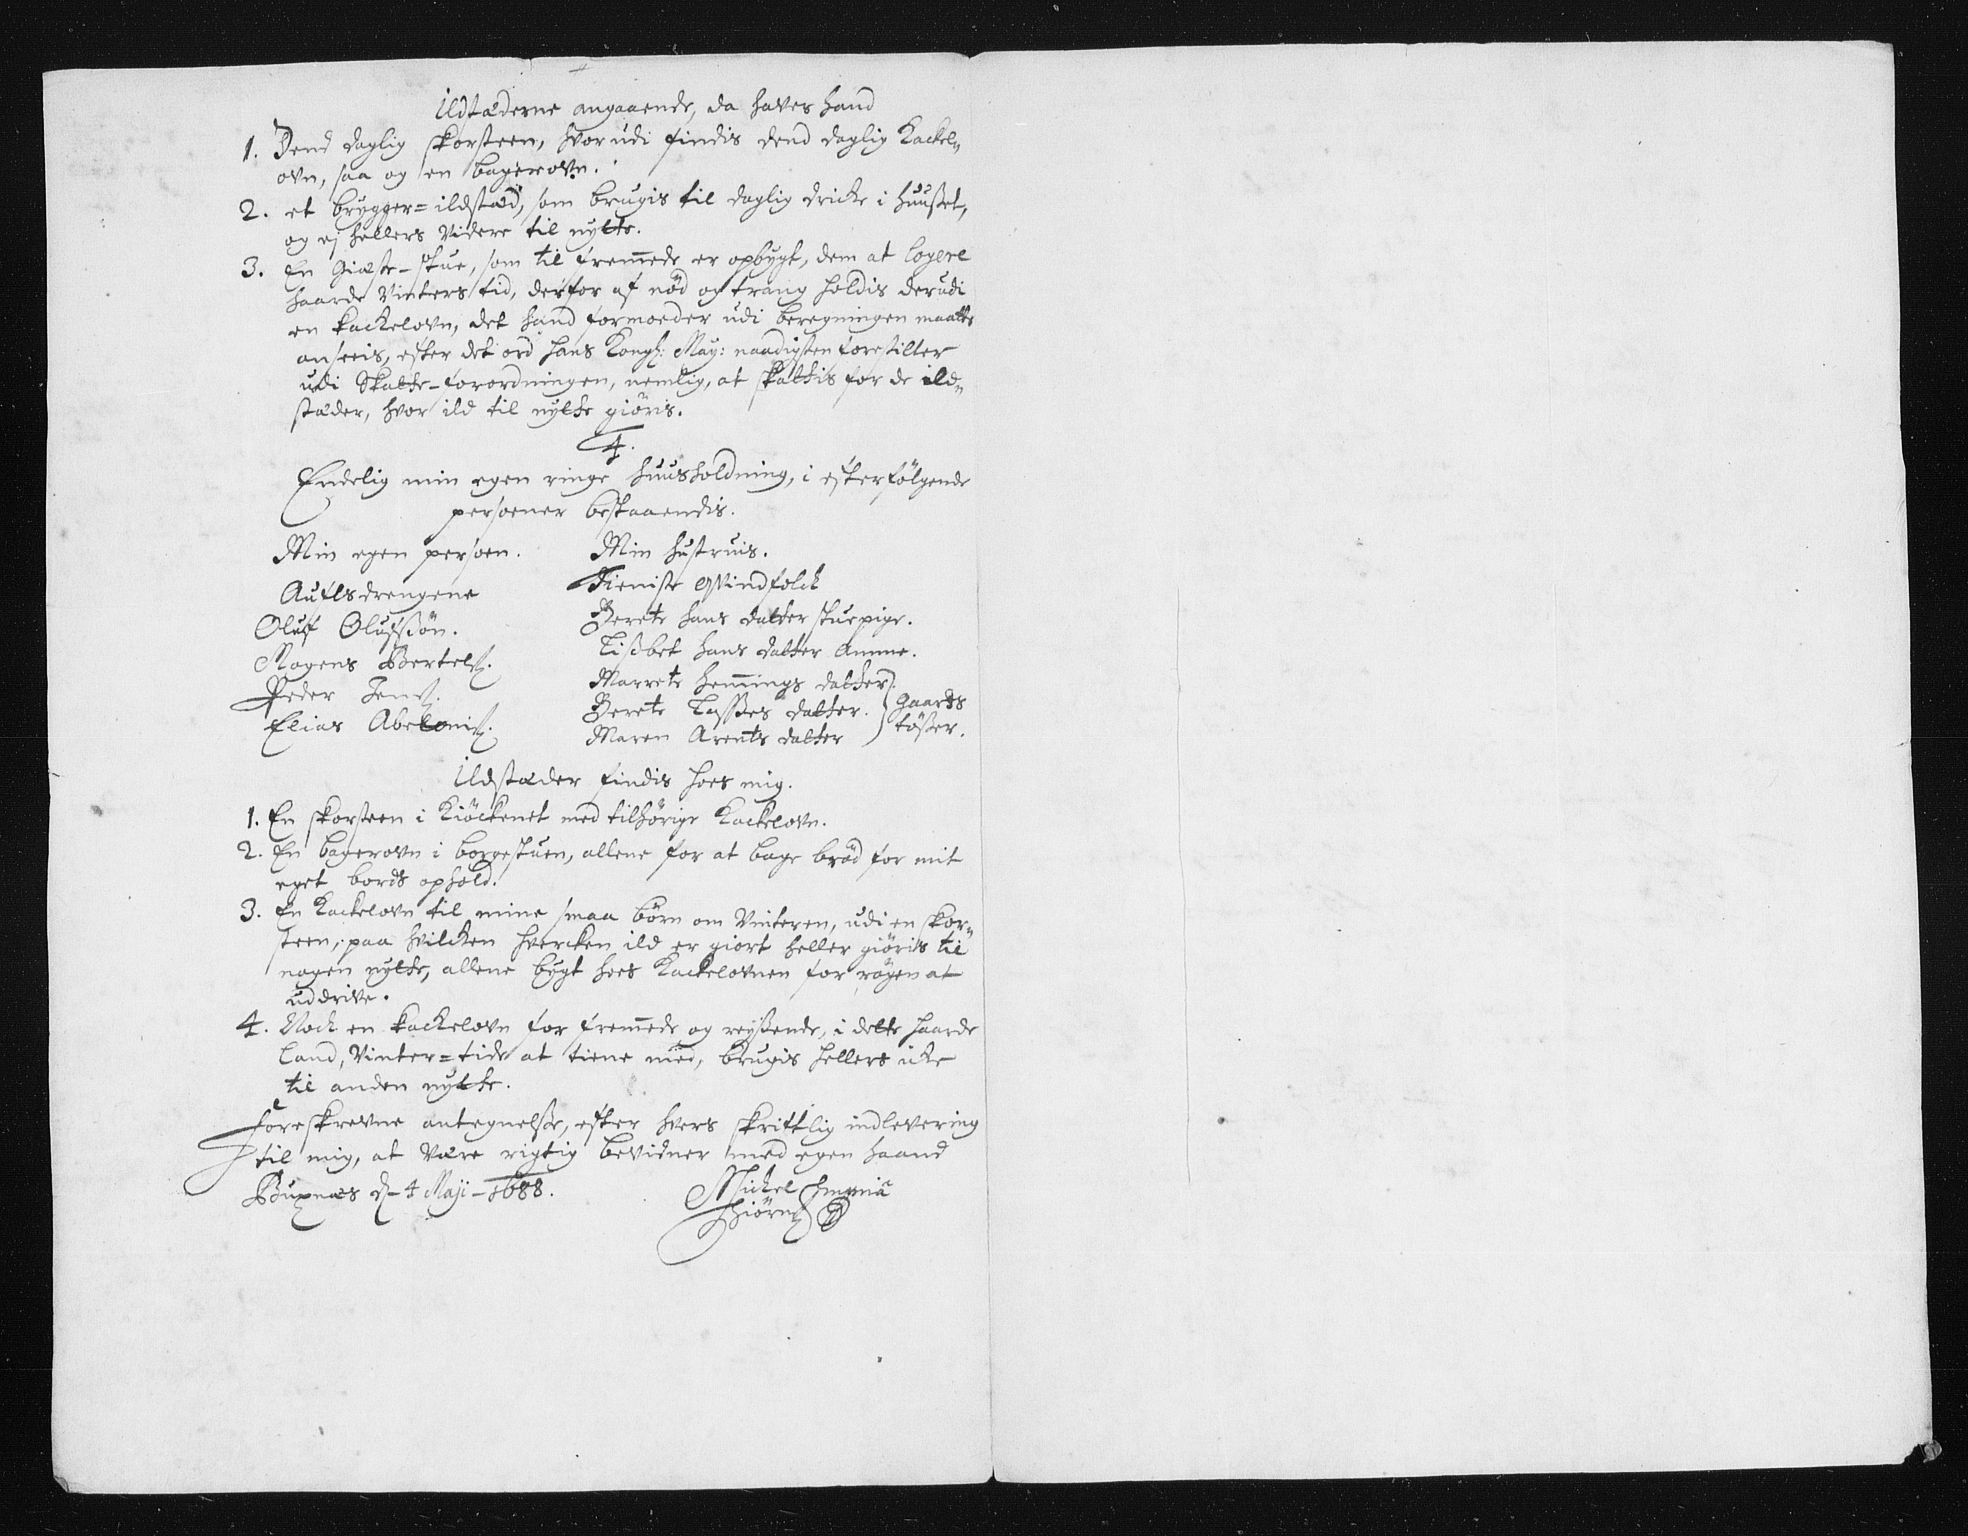 Ildstæderne angaaende, da haves hand
1. Dend daglig skorsteen, hvorudi findis dend daglig Kackel„
ovn, saa og en bagerovn.
2. et brygger=ildstæd, som brugis til daglig dricke i huusset,
og ej hellers videre til nytte.
3. En Giæste-stue, som til fremmede er opbygt, dem at logere
haarde Vinters tid, derfor af nød og trang holdis derudi
en kackelovn, det hand formoeder udi beregningen maatte
anseeis, efter det ord hans Kongl: May: naadigsten forestiller
udi Skatte-forordningen, nemlig, at skattis for de ild„
stæder, hvor ild til nytte giøris.
4.
Endelig min egen ringe huusholdning, i efterfølgende
persoener bestaaendis.
Min egen persoen. Min hustruis.
Aufls drengene Tieniste qvindfolck
Oluf Olufssøn. Berete hans datter stuepige.
Mogens Bertels. Lissbet hans datter Amme.
Peder Jens. Marrete hemmings datter.
Elias Abelonis. Berete Lasses datter. Gaards
Maren Arents datter tøsser.
Ildstæder findis hoes mig.
1. En skorsteen i Kiøckenet med tilhørige Kackelovn.
2. En bagerovn i borgestuen, allene for at bage brød for mit
eget bords ophold.
3. En Kackelovn til mine smaa børn om Vinteren, udi en skor„
steen, paa hvilcken hvercken ild er giort heller giøris til
nogen nytte, allene bygt hoes Kackelovnen for røgen at
uddrive.
4. Noch en kackelovn for fremmede og reyssende, i dette haarde
Land, Vinter=tide at tiene med, brugis hellers icke
til anden nytte.
Foreskrevne antegnelse, efter hvers skriftlig indlevering
til mig, at være rigtig bevidner med egen haand
Buxnæs d. 4 Maji - 1688.
Mickel
Hiørn